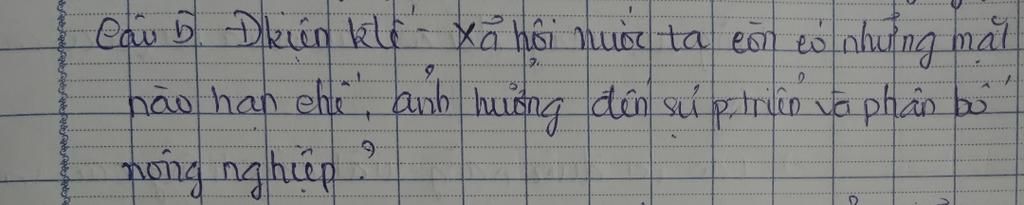 Câu 5. Đkiện ktế - xã hội nước ta còn có những mặt
nào hạn chế, ảnh hưởng đến sự p.triển và phân bố
nông nghiệp?